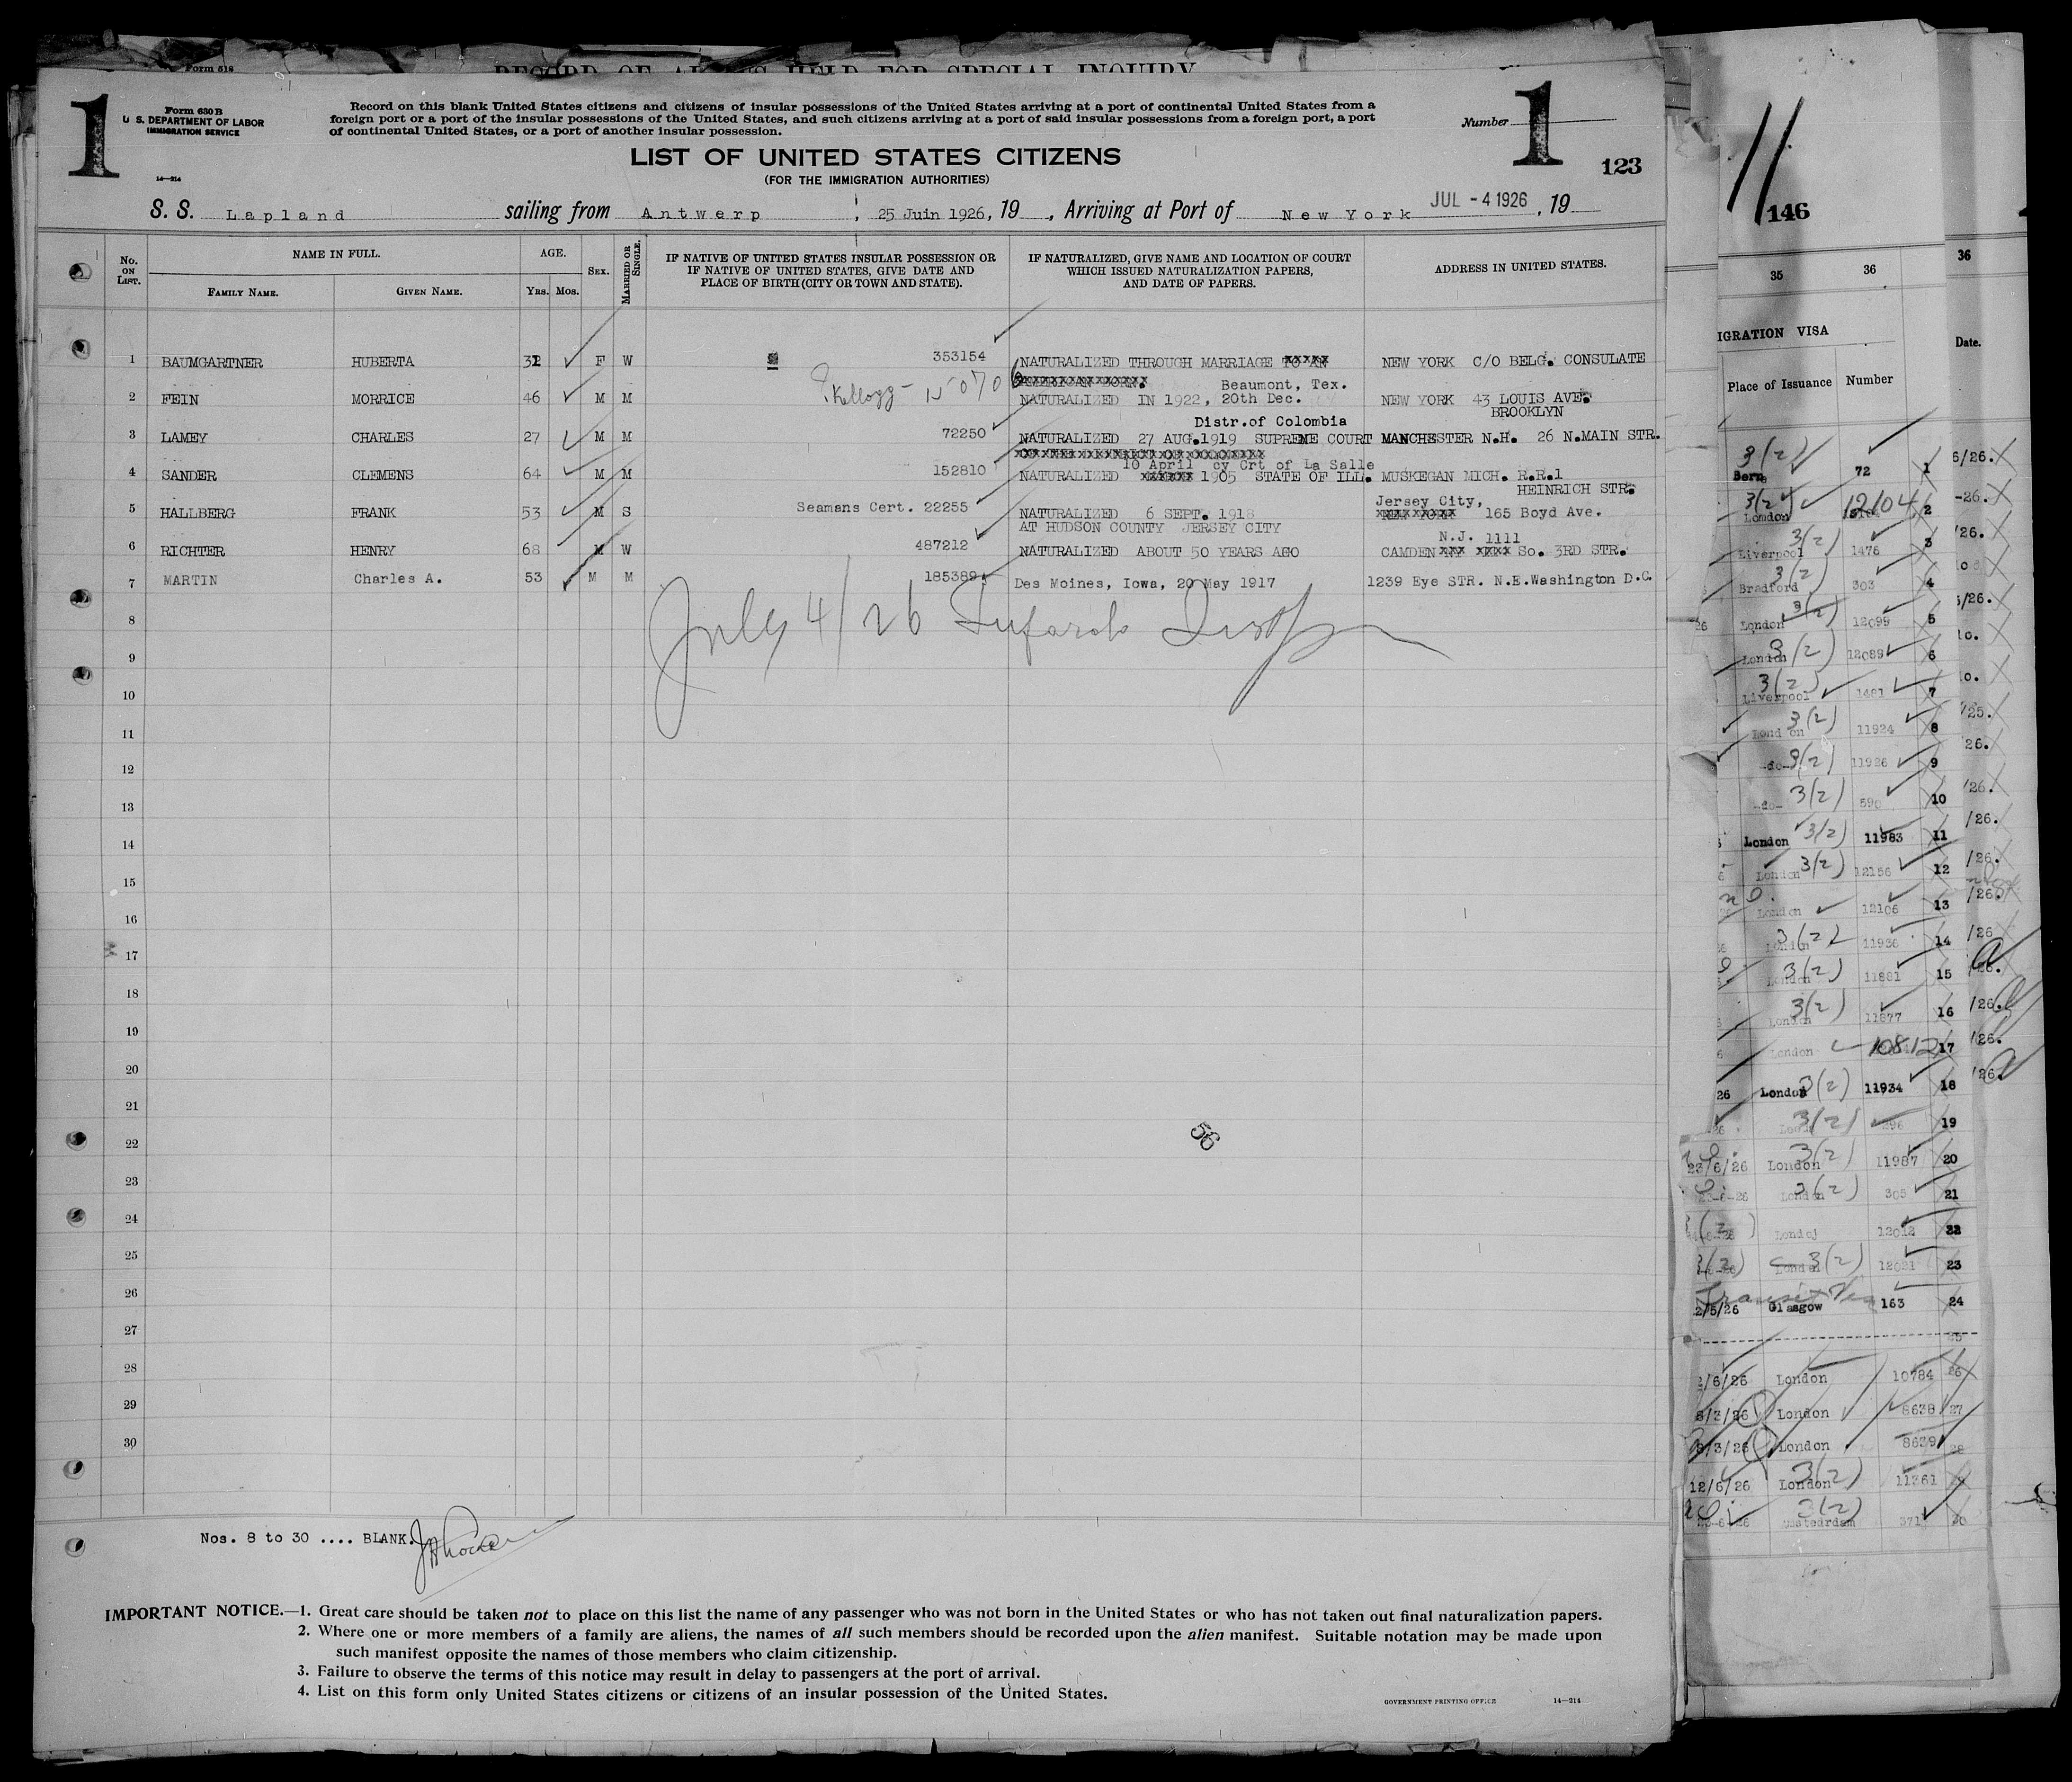 Form 518
RECORD OF ALIENS HELD FOR SPECIAL INQUIRY
1
Form 630 B
U. S. DEPARTMENT OF LABOR
IMMIGRATION SERVICE
14—214
Record on this blank United States citizens and citizens of insular possessions of the United States arriving at a port of continental United States from a
foreign port or a port of the insular possessions of the United States, and such citizens arriving at a port of said insular possessions from a foreign port, a port
of continental United States, or a port of another insular possession.
Number
1
123
LIST OF UNITED STATES CITIZENS
(FOR THE IMMIGRATION AUTHORITIES)
S. S. Lapland sailing from Antwerp, 25 Juin 1926, 19 , Arriving at Port of New York JUL - 4 1926, 19
No. ON LIST. NAME IN FULL. FAMILY NAME. GIVEN NAME. AGE. YRS. MOS. SEX. MARRIED OR SINGLE.
IF NATIVE OF UNITED STATES INSULAR POSSESSION OR
IF NATIVE OF UNITED STATES, GIVE DATE AND
PLACE OF BIRTH (CITY OR TOWN AND STATE).
IF NATURALIZED, GIVE NAME AND LOCATION OF COURT
WHICH ISSUED NATURALIZATION PAPERS,
AND DATE OF PAPERS.
ADDRESS IN UNITED STATES.
1 BAUMGARTNER HUBERTA 32 F W 353154 NATURALIZED THROUGH MARRIAGE TO AN NEW YORK C/O BELG. CONSULATE
Kellogg - 15070 Beaumont, Tex.
2 FEIN MORRICE 46 M M NATURALIZED IN 1922, 20th Dec. NEW YORK 43 LOUIS AVE.
BROOKLYN
Distr.of Colombia
3 LAMEY CHARLES 27 M M 72250 NATURALIZED 27 AUG.1919 SUPREME COURT MANCHESTER N.H. 26 N.MAIN STR.
10 April cy Crt of La Salle
4 SANDER CLEMENS 64 M M 152810 NATURALIZED 1905 STATE OF ILL. MUSKEGAN MICH. R.R.1
HEINRICH STR.
Jersey City,
5 HALLBERG FRANK 53 M S Seamans Cert. 22255 NATURALIZED 6 SEPT. 1918 165 Boyd Ave.
AT HUDSON COUNTY JERSEY CITY
N.J. 1111
6 RICHTER HENRY 68 M W 487212 NATURALIZED ABOUT 50 YEARS AGO CAMDEN So. 3RD STR.
7 MARTIN Charles A. 53 M M 185389 Des Moines, Iowa, 20 May 1917 1239 Eye STR. N.E.Washington D.C.
July 4/26
8
9
10
11
12
13
14
15
16
17
18
19
20
21
22
23
24
25
26
27
28
29
30
56
Nos. 8 to 30 .... BLANK.
IMPORTANT NOTICE.—1. Great care should be taken not to place on this list the name of any passenger who was not born in the United States or who has not taken out final naturalization papers.
2. Where one or more members of a family are aliens, the names of all such members should be recorded upon the alien manifest. Suitable notation may be made upon
such manifest opposite the names of those members who claim citizenship.
3. Failure to observe the terms of this notice may result in delay to passengers at the port of arrival.
4. List on this form only United States citizens or citizens of an insular possession of the United States.
GOVERNMENT PRINTING OFFICE 14—214
11
146
35 36
36
IGRATION VISA
Date.
Place of Issuance Number
3(2) Bern 72 1
3(2) London 12104 2
3(2) Liverpool 1476 3
3(2) Bradford 303 4
3(2) London 12099 5
3(2) London 12089 6
3(2) Liverpool 1481 7
3(2) London 11924 8
-do- 3(2) 11926 9
-do- 3(2) 590 10
London 3(2) 11983 11
London 3(2) 12156 12
London 12106 13
3(2) London 11936 14
3(2) London 11881 15
3(2) London 11877 16
London 10812 17
26 London 3(2) 11934 18
3(2) 19
23/6/26 London 3(2) 11987 20
23-6-26 London 3(2) 305 21
3(2) 12012 22
3(2) London 3(2) 12021 23
Transit Visa
2/5/26 Glasgow 163 24
25
2/6/26 London 10784 26
8/3/26 London 8638 27
8/3/26 London 8639 28
12/6/26 London 3(2) 11361 29
3(2) Amsterdam 371 30